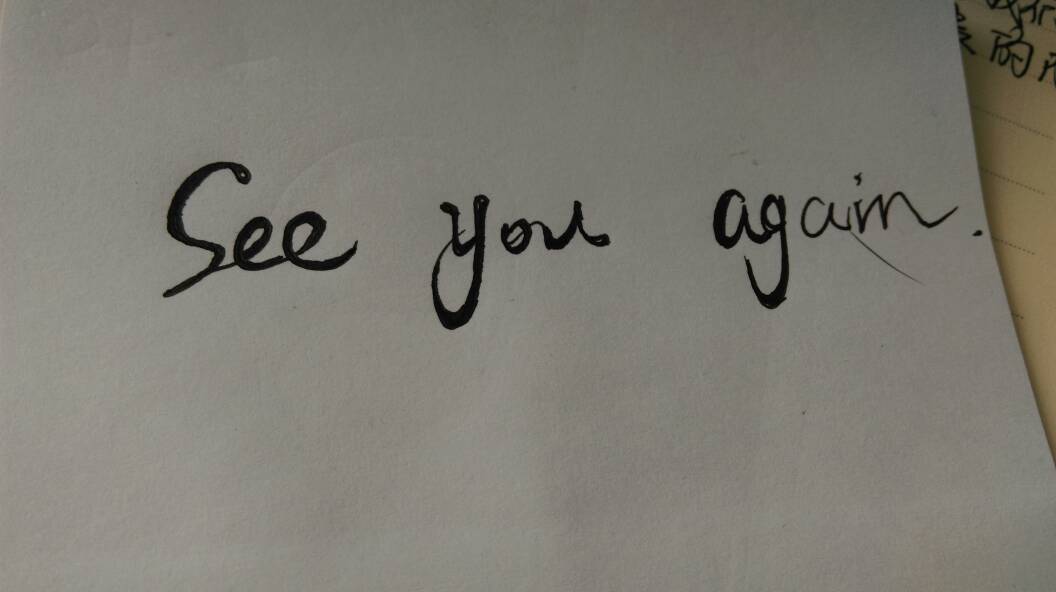 See you again.
的